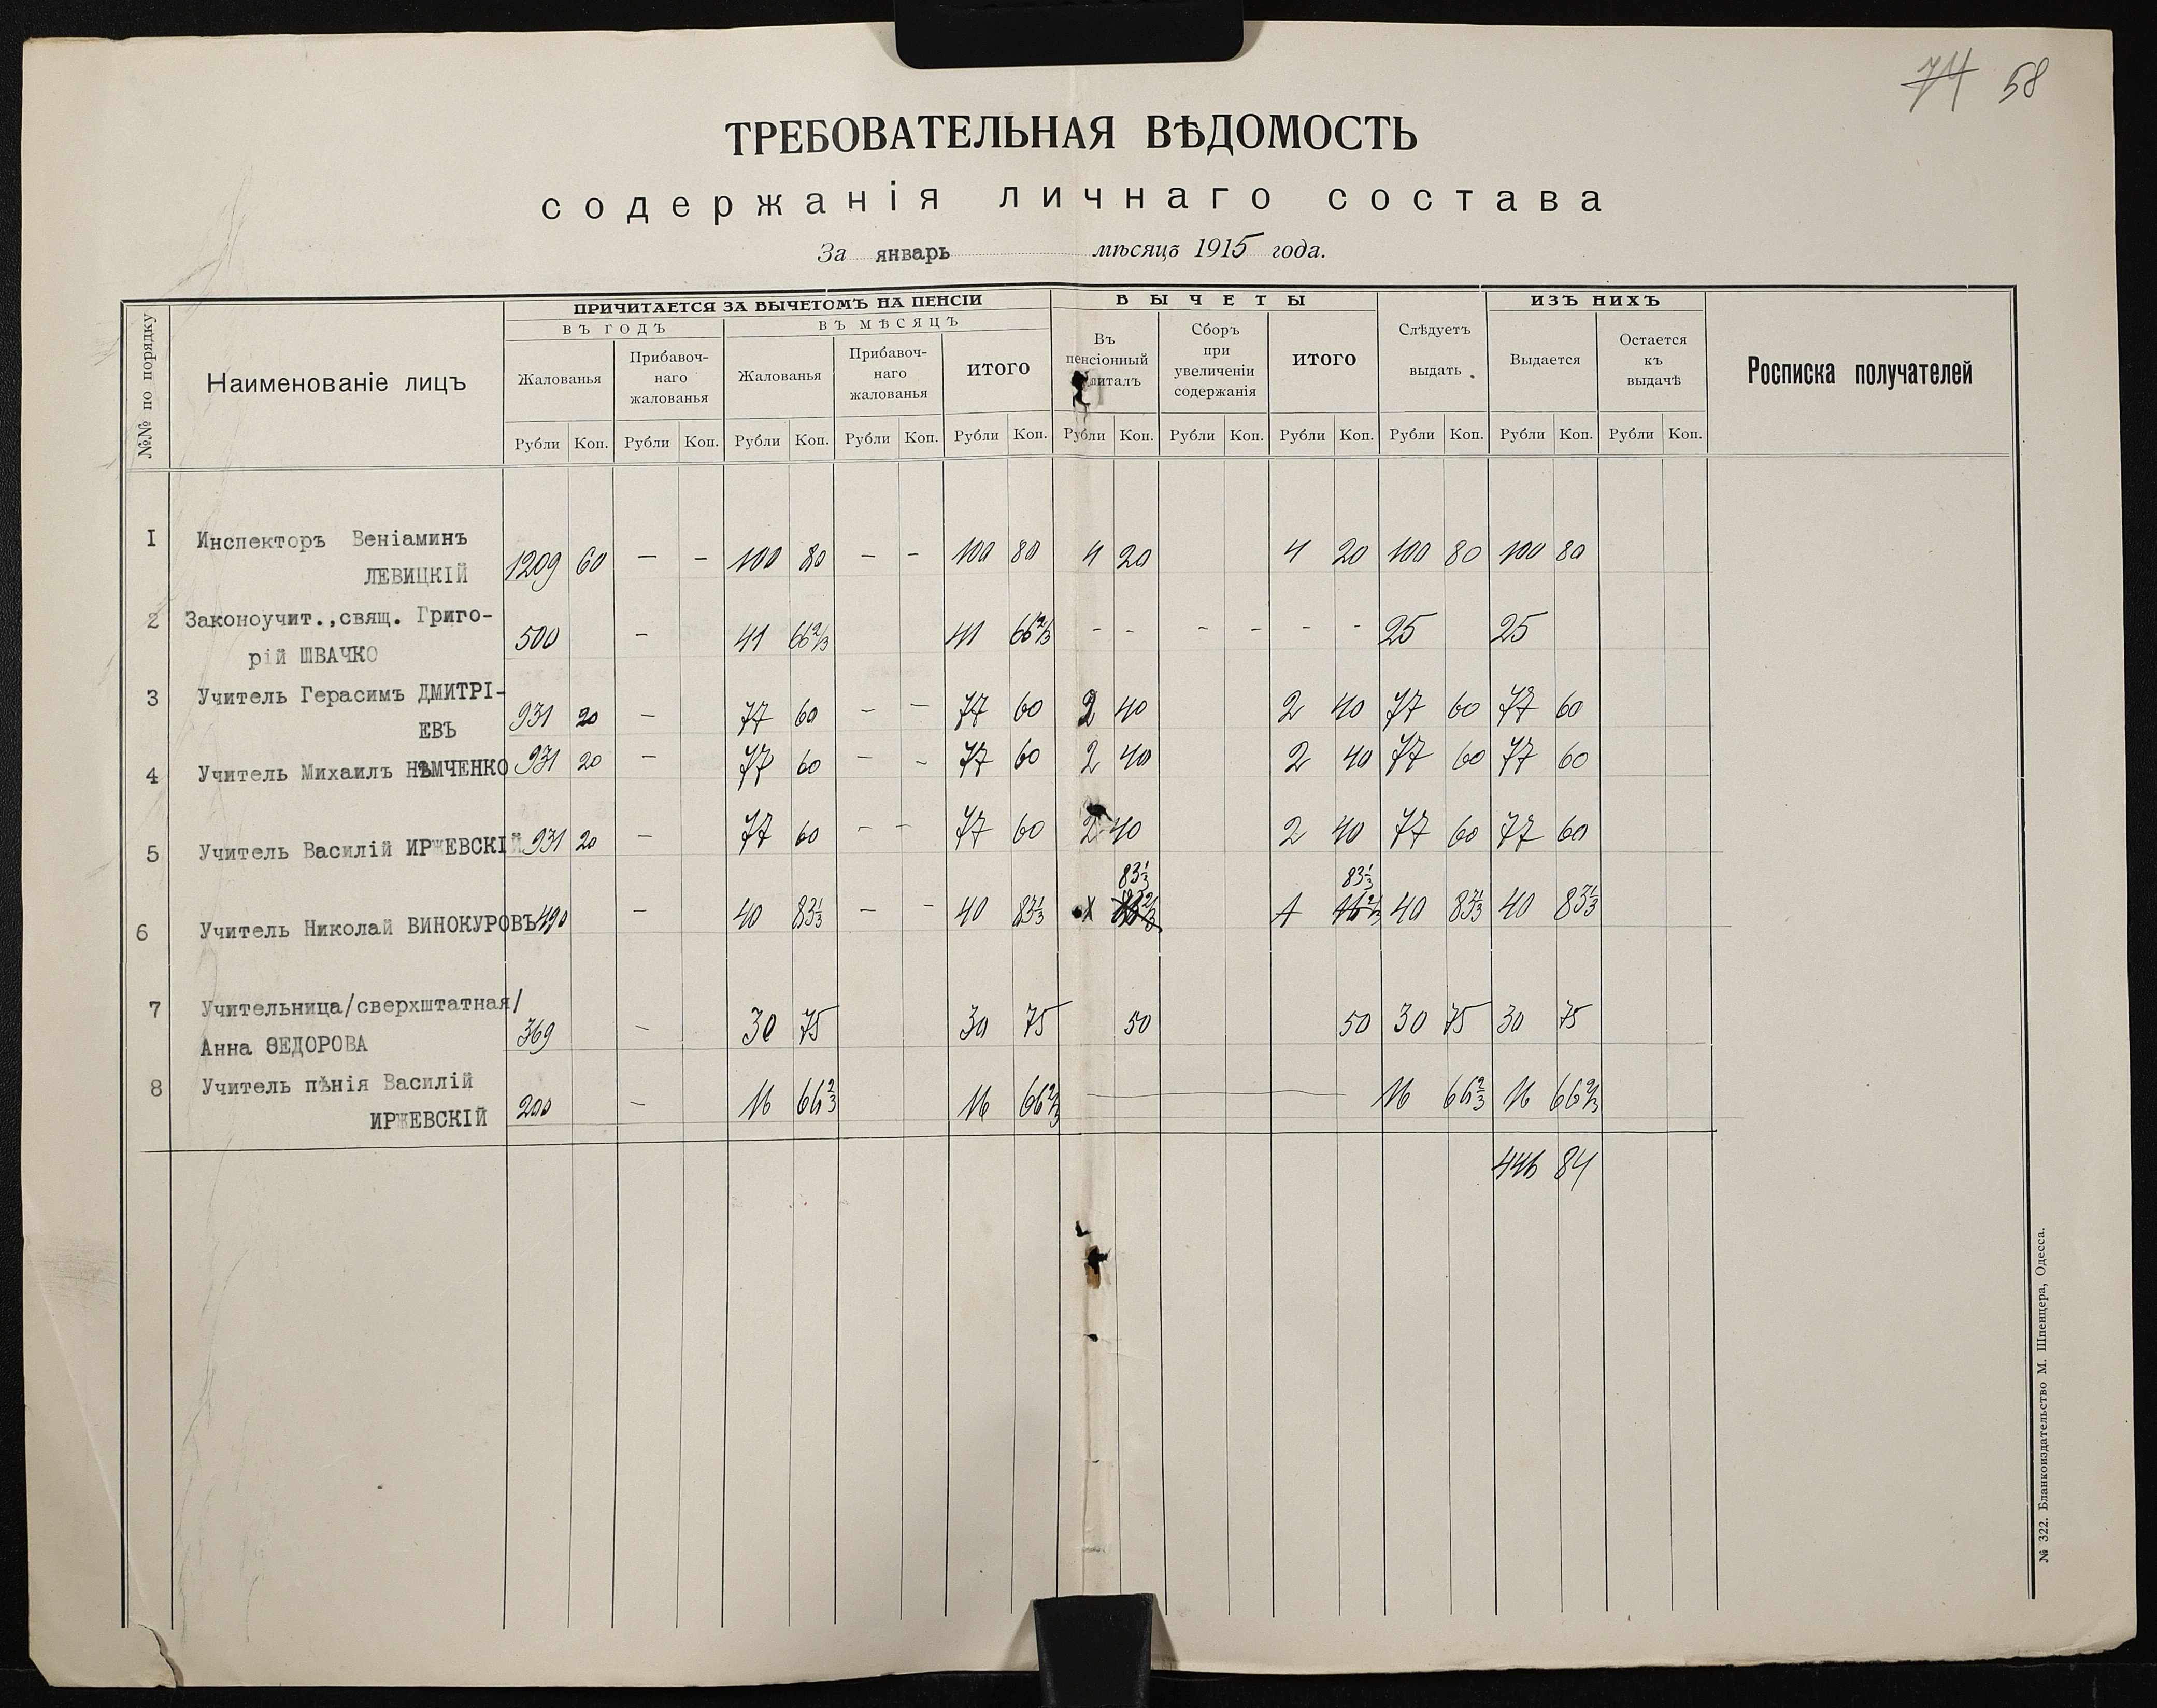 74 58
ТРЕБОВАТЕЛЬНАЯ ВѢДОМОСТЬ
содержанія личнаго состава
За январь мѣсяцъ 1915 года.
№№ по порядку
Наименованіе лицъ
ПРИЧИТАЕТСЯ ЗА ВЫЧЕТОМЪ НА ПЕНСІИ
ВЫЧЕТЫ
ИЗЪ НИХЪ
ВЪ ГОДЪ
ВЪ МѢСЯЦЪ
Жалованья
Прибавоч-
наго
жалованья
Жалованья
Прибавоч-
наго
жалованья
ИТОГО
Въ
пенсіонный
Сборъ
при
увеличеніи
содержанія
ИТОГО
Слѣдуетъ
выдать
Выдается
Остается
къ
выдачѣ
Росписка получателей
Рубли Коп. Рубли Коп. Рубли Коп. Рубли Коп. Рубли Коп. Рубли Коп. Рубли Коп. Рубли Коп. Рубли Коп. Рубли Коп. Рубли Коп.
I Инспекторъ Веніаминъ
ЛЕВИЦКІЙ 1209 60 — - 100 80 — - 100 80 4 20 4 20 100 80 100 80
2 Законоучит.,свящ. Григо-
рій ШВАЧКО 500 - 41 66 2/3 41 66 2/3 - - - - - - 25 25
3 Учитель Герасимъ ДМИТРІ-
ЕВЪ 931 20 — 77 60 — — 77 60 2 40 2 40 77 60 77 60
4 Учитель Михаилъ НѢМЧЕНКО 931 20 — 77 60 — - 77 60 2 40 2 40 77 60 77 60
5 Учитель Василій ИРЖЕВСКІЙ 931 20 — 77 60 — — 77 60 2 40 2 40 77 60 77 60
83 1/3 83 1/3
6 Учитель Николай ВИНОКУРОВЪ 490 — 40 83 1/3 — - 40 83 1/3 40 83 1/3 40 83 1/3
7 Учительница/сверхштатная/
Анна ѲЕДОРОВА 369 - 30 75 30 75 50 50 30 75 30 75
8 Учитель пѣнія Василій
ИРЖЕВСКІЙ 200 - 16 66 2/3 16 66 2/3 — 16 66 2/3 16 66 2/3
446 84
№ 322. Бланкоиздательство М. Шпенцера, Одесса.